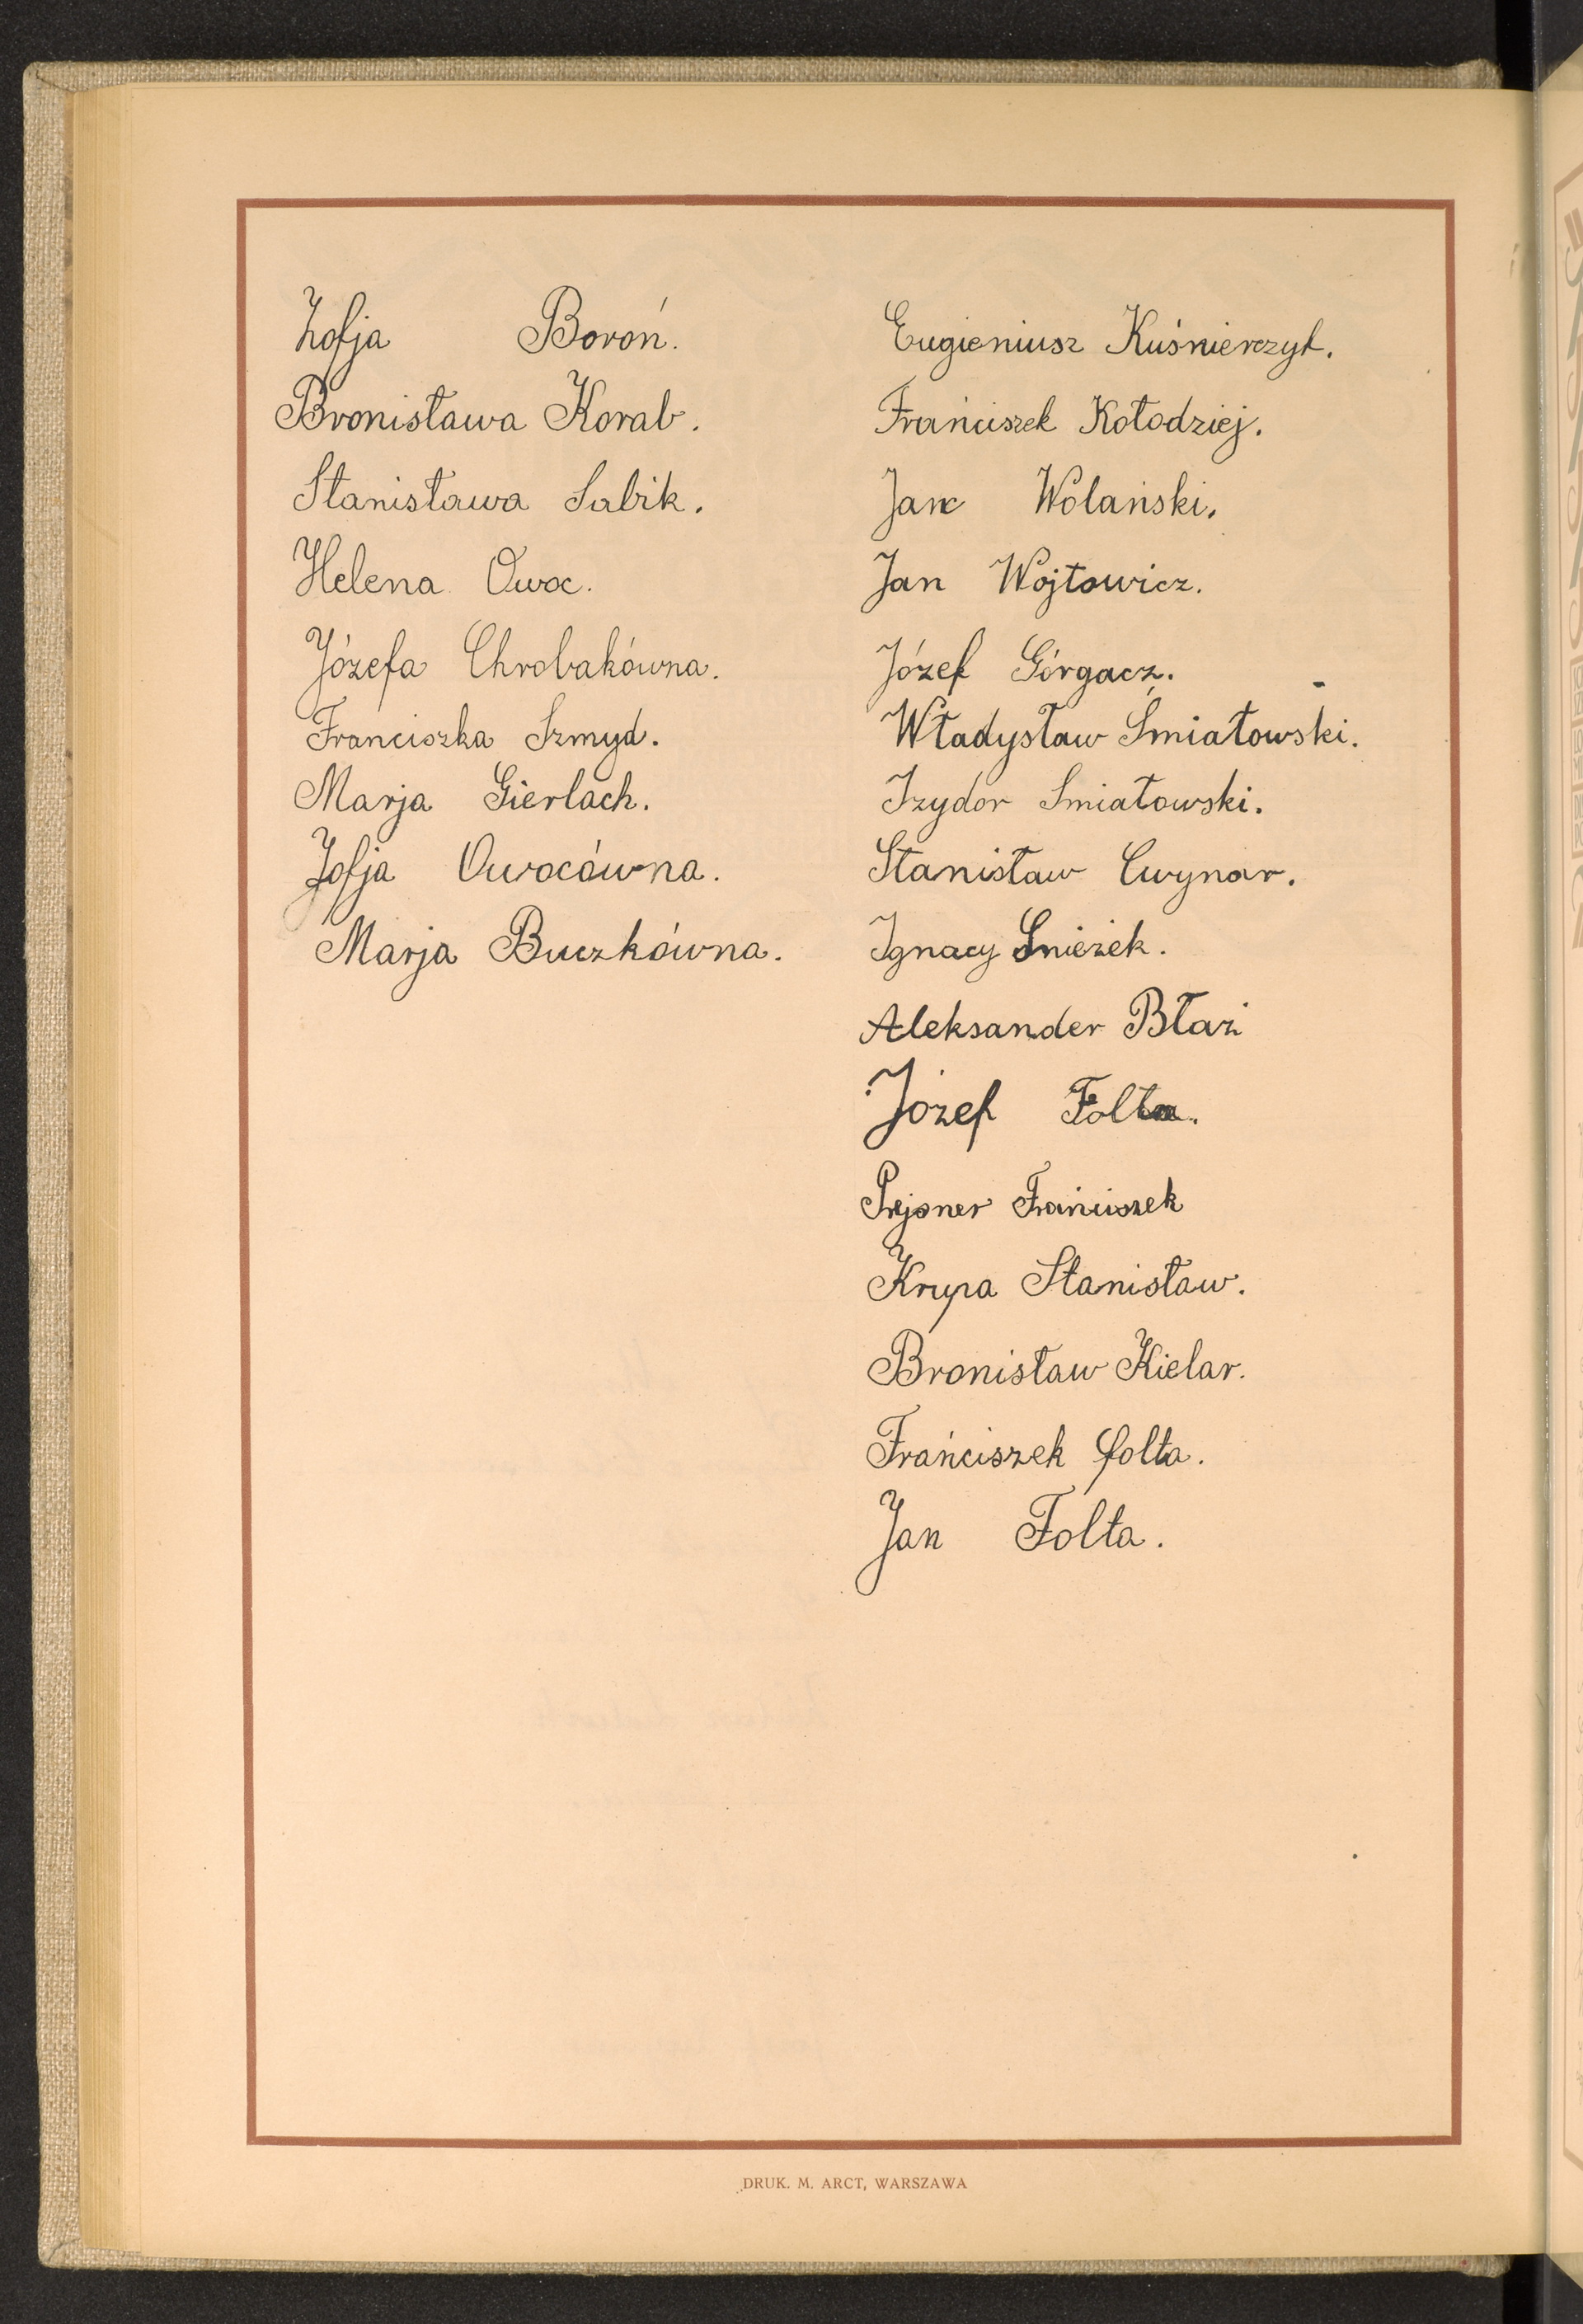 Zofja Boroń.
Bronisława Korab.
Stanisława Sabik.
Helena Owoc.
Józefa Chrobakówna.
Franciszka Szmyd.
Marja Gierlach.
Zofja Owocówna.
Marja Buczkówna.
Eugieniusz Kuśnierczyk.
Frańciszek Kołodziej.
Jan Wolański.
Jan Wojtowicz.
Józef Górgacz.
Władysław Śmiatowski.
Izydor Smiatowski.
Stanisław Cwynar.
Ignacy Śnieżek.
Aleksander Błaż
Józef Folta.
Prejsner Frańciszek
Krupa Stanisław.
Bronisław Kielar.
Frańciszek Folta.
Jan Folta.
DRUK. M. ARCT, WARSZAWA